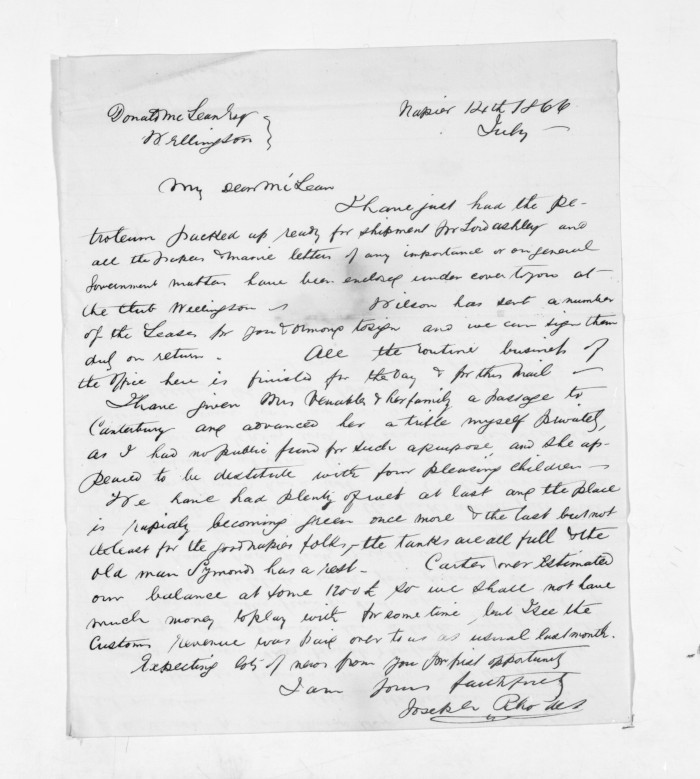 Donald McLean Esq
Wellington
Napier 14th 1866
July
My dear McLean
I have just had the pe-
troleum packed up ready for shipment for Lord Ashley and
all the papers & maorie letters of any importance or on general
Government matters have been enclosed under cover to you at
the Club Wellington Wilson has sent a number
of the Leases for you & Ormond to sign and we can sign them
duly on return. All the routine business of
the office here is finished for the day & for this mail
I have given Mrs Venables & her family a passage to
Canterbury and advanced her a trifle myself privately,
as I had no public fund for such a purpose, and she ap-
peared to be destitute with four pleasing children
We have had plenty of wet at last and the place
is rapidly becoming green once more & the last but not
the least for the good napier folks, the tanks are all full & the
old man Symonds has a rest. Carter over Estimated
our balance at some 1200£ so we shall not have
much money to play with for some time, but I see the
Customs revenue was paid over to us as usual last month.
Expecting lots of news from you for first opportunity
I am yours faithfully
Joseph Rhodes